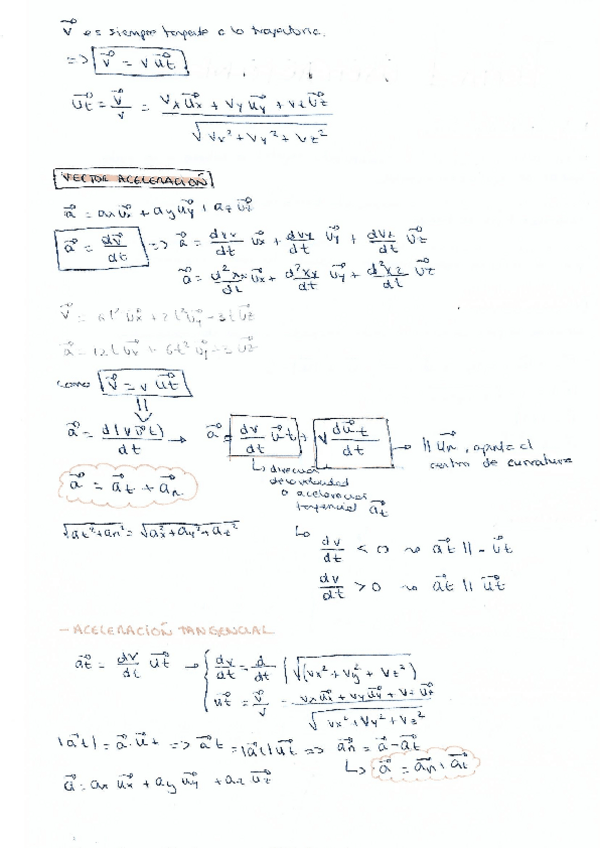 v⃗ es siempre tangente a la trayectoria.
=> v⃗ = v u⃗t
u⃗t = v⃗/v = (vx u⃗x + vy u⃗y + vz u⃗z) / √(vx² + vy² + vz²)
VECTOR ACELERACIÓN
a⃗ = ax u⃗x + ay u⃗y + az u⃗z
a⃗ = dv⃗/dt => a⃗ = dvx/dt u⃗x + dvy/dt u⃗y + dvz/dt u⃗z
a⃗ = d²xx/dt u⃗x + d²xy/dt u⃗y + d²xz/dt u⃗z
como v⃗ = v u⃗t
a⃗ = d(v u⃗t)/dt → a⃗ = dv/dt u⃗t + v du⃗t/dt → || u⃗n, apunta al
centro de curvatura
↳ dirección
de velocidad
o aceleración
tangencial a⃗t
a⃗ = a⃗t + a⃗n
√(at² + an²) = √(ax² + ay² + az²)
↳ dv/dt < 0 ~> a⃗t || - u⃗t
dv/dt > 0 ~> a⃗t || u⃗t
- ACELERACIÓN TANGENCIAL
a⃗t = dv/dt u⃗t → { dv/dt = d/dt (√(vx² + vy² + vz²))
u⃗t = v⃗/v = (vx u⃗x + vy u⃗y + vz u⃗z) / √(vx² + vy² + vz²)
|a⃗t| = a⃗ · u⃗t => a⃗t = |a⃗t| u⃗t => a⃗n = a⃗ - a⃗t
↳ a⃗ = a⃗n + a⃗t
a⃗ = ax u⃗x + ay u⃗y + az u⃗z